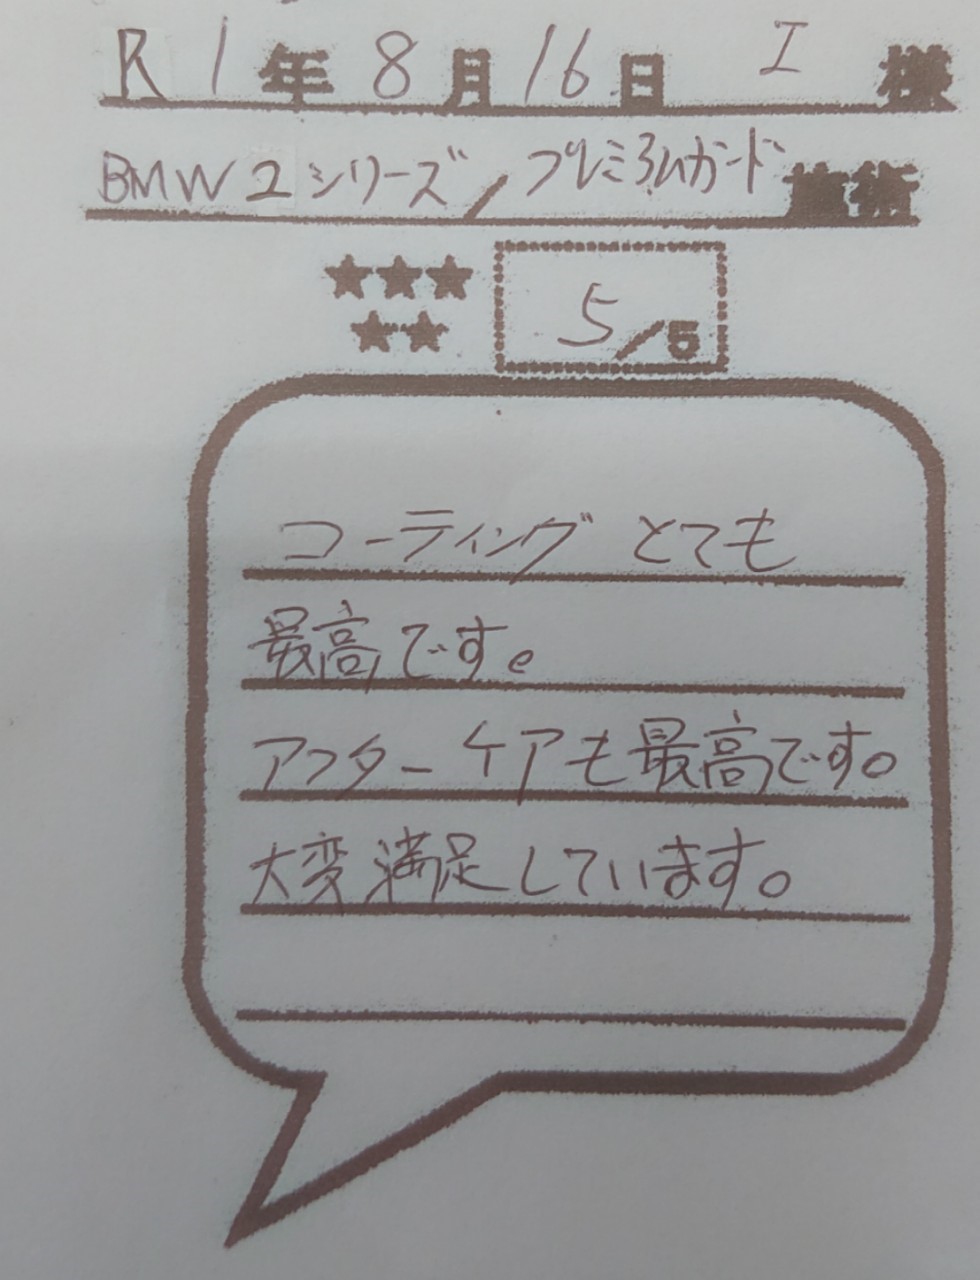 R1年8月16日 I様
BMW2シリーズ/プレミアムガード施術
★★★
★★
5/5
コーティングとても
最高です。
アフターケアも最高です。
大変満足しています。